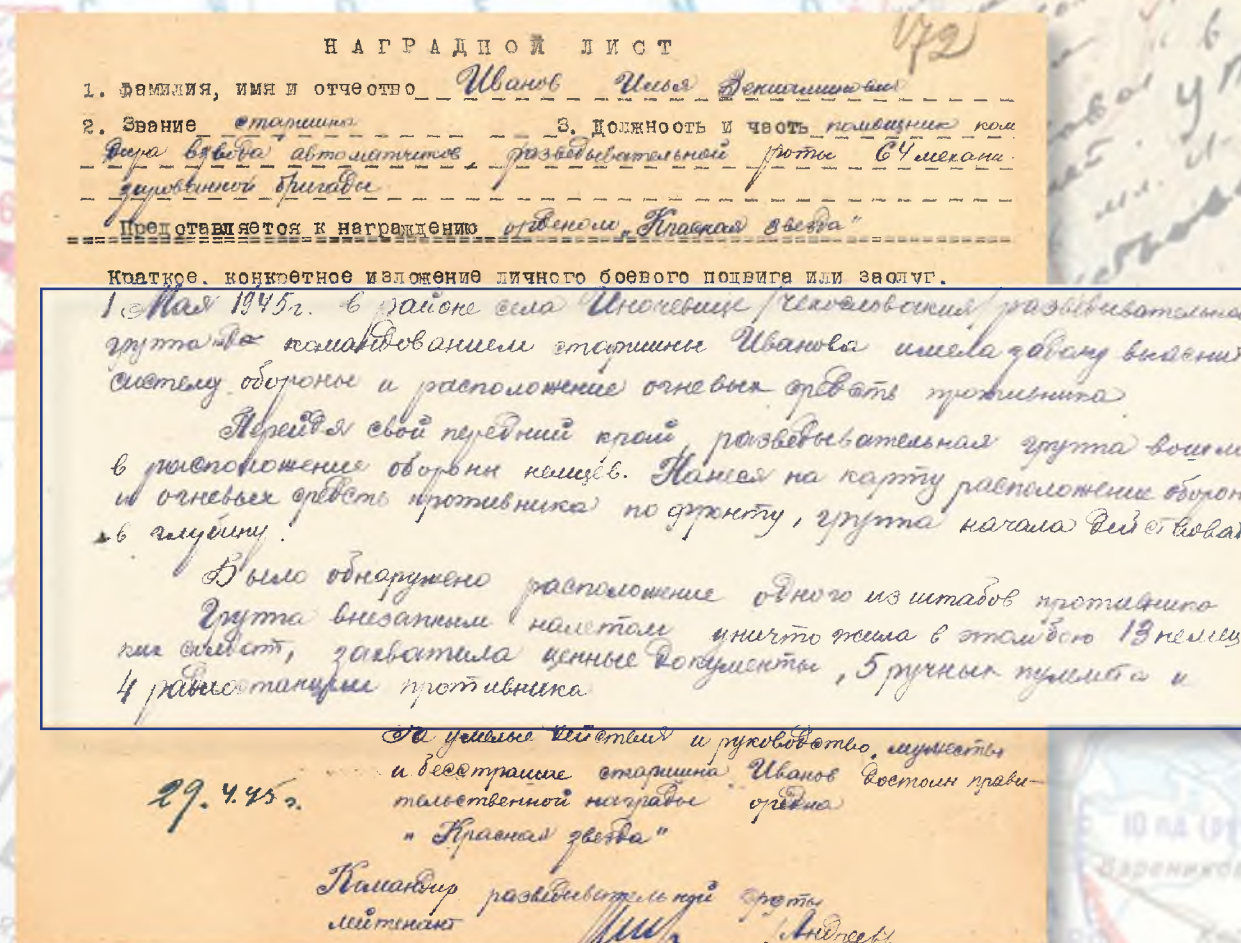 172
НАГРАДНОЙ ЛИСТ
1. Фамилия, имя и отчество Иванов Илья
2. Звание старшина 3. Должность и часть помощник ком
дира взвода автоматчиков разведывательной роты 64 механи-
зированной бригады
Представляется к награждению орденом „Красная звезда"
Краткое, конкретное изложение личного боевого подвига или заслуг.
1 Мая 1945г. в районе села /Чехословакия/ разведывательная
группа под командованием старшины Иванова имела задачу выяснит
систему обороны и расположение огневых средств противника
Перейдя свой передний край, разведывательная группа вошла
в расположение обороны немцев. Нанеся на карту расположение оборон
и огневых средств противника по фронту, группа начала действоват
в глубину.
Было обнаружено расположение одного из штабов противника
Группа внезапным налетом уничтожила в этом бою 13 немец
ких солдат, захватила ценные документы, 5 ручных пулемета и
4 радиостанции противника
За умелые действия и руководство, мужество
и бесстрашие старшина Иванов достоин прави-
29.4.45г. тельственной награды ордена
„Красная звезда"
Командир разведывательной роты
лейтенант /Андреев/
10 пд
Варениковс